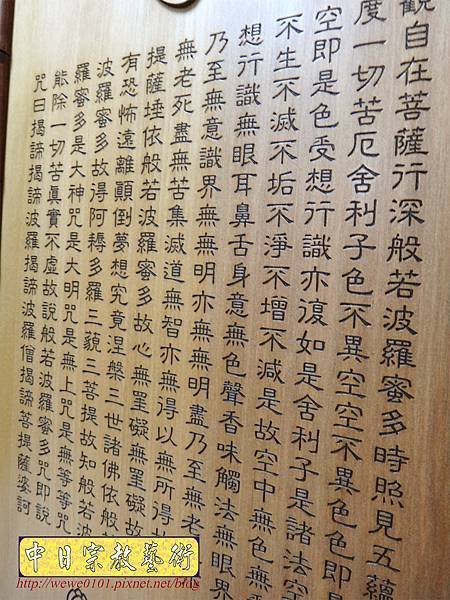 觀自在菩薩行深般若波羅蜜多時照見五蘊
度一切苦厄舍利子色不異空空不異色色即是
空即是色受想行識亦復如是舍利子是諸法空
不生不滅不垢不淨不增不減是故空中無色無
想行識無眼耳鼻舌身意無色聲香味觸法無眼界
乃至無意識界無無明亦無無明盡乃至無老
無老死盡無苦集滅道無智亦無得以無所得故
提薩埵依般若波羅蜜多故心無罣礙無罣礙故
有恐怖遠離顛倒夢想究竟涅槃三世諸佛依般
波羅蜜多故得阿耨多羅三藐三菩提故知般若波
羅蜜多是大神咒是大明咒是無上咒是無等等咒
能除一切苦真實不虛故說般若波羅蜜多咒即說
咒曰揭諦揭諦波羅揭諦波羅僧揭諦菩提薩婆訶
中日宗教藝術
http://wewe0101.pixnet.net/blog